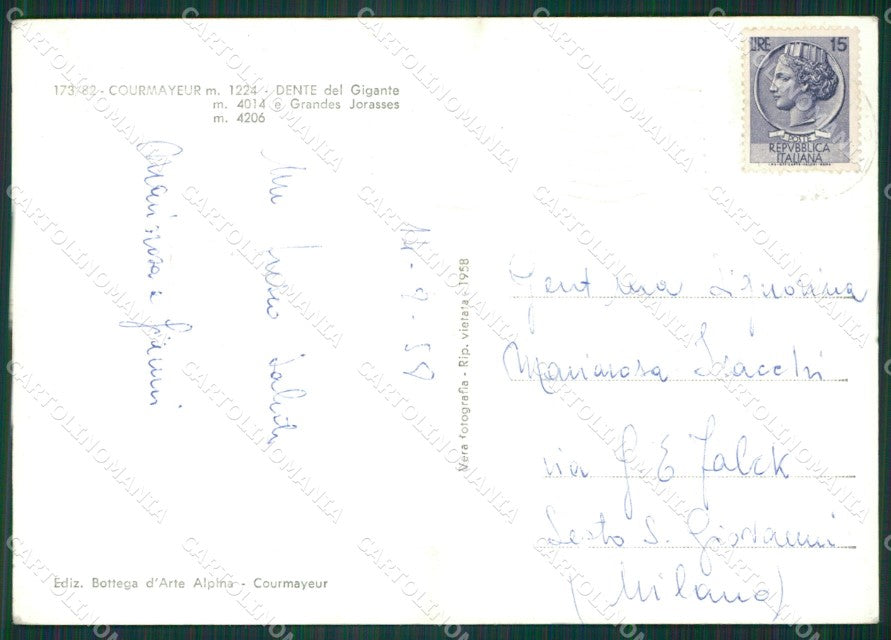 173/82 - COURMAYEUR m. 1224 - DENTE del Gigante
m. 4014 e Grandes Jorasses
m. 4206
LIRE 15
POSTE
REPVBBLICA
ITALIANA
14 - 9 - 58
Un caro saluto
Annarosa e Gianni
Vera fotografia - Rip. vietata - 1958
Gent.ma Signorina
Mariarosa
via G E Falck
Sesto S. Giovanni
(Milano)
Ediz. Bottega d'Arte Alpina - Courmayeur
CARTOLINOMANIA